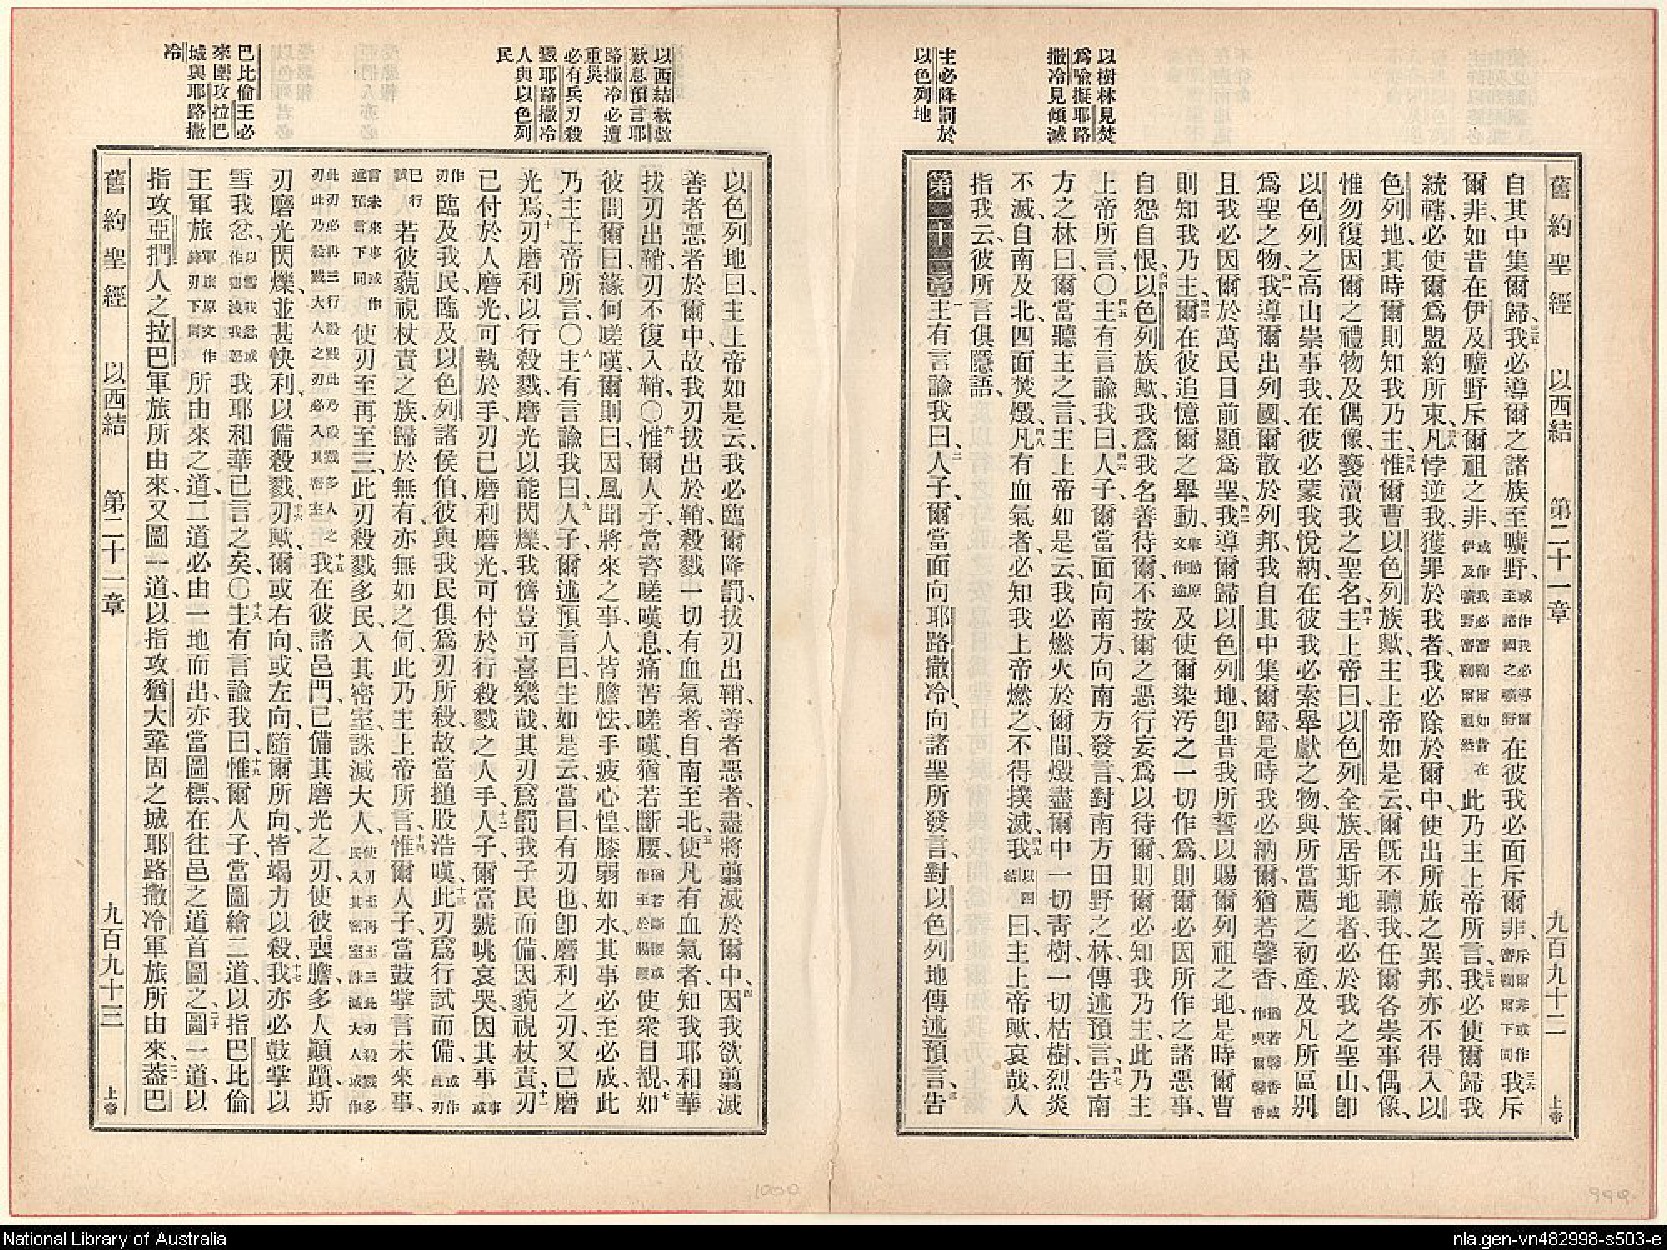 舊約聖經 以西結 第二十一章 九百九十二 上帝
以樹林見焚
爲喻擬耶路
撒冷見傾滅
主必降罰於
以色列地
自其中集爾歸我必導爾之諸族至曠野在彼我必面斥爾非我斥
爾非如昔在伊及曠野斥爾祖之非此乃主上帝所言我必使爾歸我
統轄必使爾爲盟約所束凡悖逆我獲罪於我者我必除於爾中使出所旅之異邦亦不得入以
色列地其時爾則知我乃主惟爾曹以色列族歟主上帝如是云爾旣不聽我任爾各崇事偶像
惟勿復因爾之禮物及偶像褻瀆我之聖名主上帝曰以色列全族居斯地者必於我之聖山卽
以色列之高山崇事我在彼必蒙我悅納在彼我必索舉獻之物與所當薦之初產及凡所區別
爲聖之物我導爾出列國爾散於列邦我自其中集爾歸是時我必納爾猶若馨香
且我必因爾於萬民目前顯爲聖我導爾歸以色列地卽昔我所誓以賜爾列祖之地是時爾曹
則知我乃主爾在彼追憶爾之舉動及使爾染污之一切作爲則爾必因所作之諸惡事
自怨自恨以色列族歟我爲我名善待爾不按爾之惡行妄爲以待爾則爾必知我乃主此乃主
上帝所言○主有言諭我曰人子爾當面向南方向南方發言對南方田野之林傳述預言告南
方之林曰爾當聽主之言主上帝如是云我必燃火於爾間燬盡爾中一切靑樹一切枯樹烈炎
不滅自南及北四面焚燬凡有血氣者必知我上帝燃之不得撲滅我曰主上帝歟哀哉人
指我云彼所言俱隱語
第二十一章 主有言諭我曰人子爾當面向耶路撒冷向諸聖所發言對以色列地傳述預言告
以西結欷歔
歎息預言耶
路撒冷必遭
重災
必有兵刃殺
戮耶路撒冷
人與以色列
民
巴比倫王必
來圍攻拉巴
城與耶路撒
冷
以色列地曰主上帝如是云我必臨爾降罰拔刃出鞘善者惡者盡將翦滅於爾中因我欲翦滅
善者惡者於爾中故我刃拔出於鞘殺戮一切有血氣者自南至北使凡有血氣者知我耶和華
拔刃出鞘刃不復入鞘○惟爾人子當咨嗟嘆息痛苦嗟嘆猶若斷腰使衆目覩如
彼問爾曰緣何嗟嘆爾則曰因風聞將來之事人皆膽怯手疲心惶膝弱如水其事必至必成此
乃主上帝所言○主有言諭我曰人子爾述預言曰主如是云當曰有刃也卽磨利之刃又已磨
光焉刃磨利以行殺戮磨光以能閃爍我儕豈可喜樂哉其刃爲罰我子民而備因藐視杖責刃
已付於人磨光可執於手刃已磨利磨光可付於行殺戮之人手人子爾當號咷哀哭因其事
臨及我民臨及以色列諸侯伯彼與我民俱爲刃所殺故當搥股浩嘆此刃爲行試而備
若彼藐視杖責之族歸於無有亦無如之何此乃主上帝所言惟爾人子當鼓掌言未來事
使刃至再至三此刃殺戮多民入其密室誅滅大人
我在彼諸邑門已備其磨光之刃使彼喪膽多人顚躓斯
刃磨光閃爍並甚快利以備殺戮刃歟爾或右向或左向隨爾所向皆竭力以殺我亦必鼓掌以
雪我忿我耶和華已言之矣○主有言諭我曰惟爾人子當圖繪二道以指巴比倫
王軍旅所由來之道二道必由一地而出亦當圖標在往邑之道首圖之圖一道以
指攻亞捫人之拉巴軍旅所由來又圖一道以指攻猶大鞏固之城耶路撒冷軍旅所由來葢巴
舊約聖經 以西結 第二十一章 九百九十三 上帝
1000
999
National Library of Australia
nla.gen-vn482998-s503-e